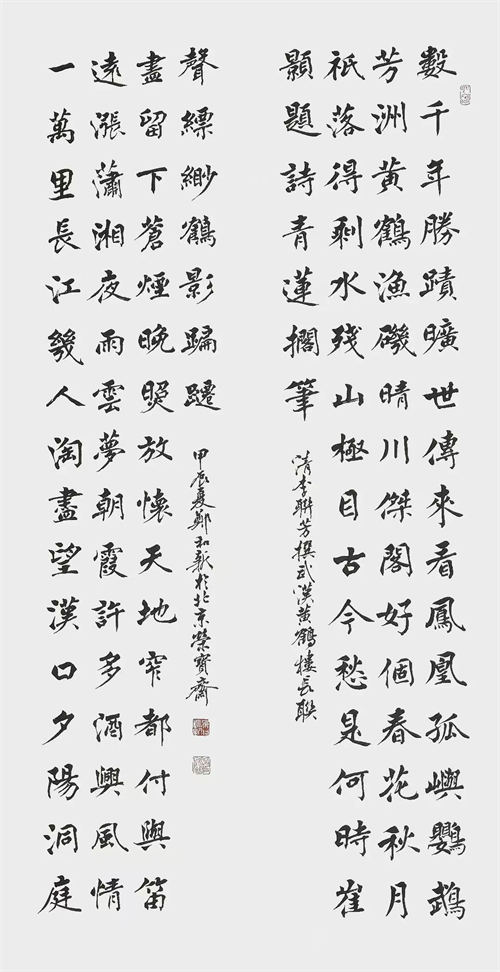 數千年勝蹟曠世傳來看鳳凰孤嶼鸚鵡
芳洲黃鶴漁磯晴川傑閣好個春花秋月
衹落得剩水残山極目古今愁是何時崔
顥題詩青蓮擱筆
清李聯芳撰武漢黃鶴樓長聯
一萬里長江幾人淘盡望漢口夕陽洞庭
遠漲瀟湘夜雨雲夢朝霞許多酒興風情
盡留下蒼煙晚照放懷天地窄都付與笛
聲縹緲鶴影蹁躚
甲辰夏鄭和於北京榮寶齋